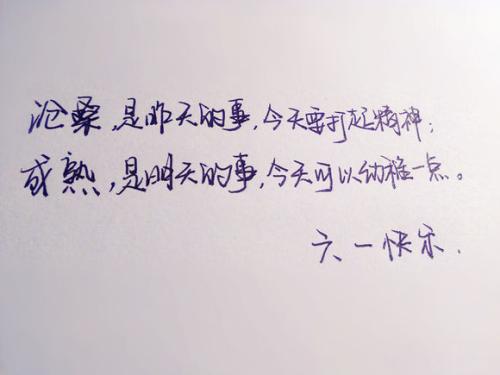 沧桑,是昨天的事,今天要打起精神;
成熟,是明天的事,今天可以幼稚一点。
六一快乐.